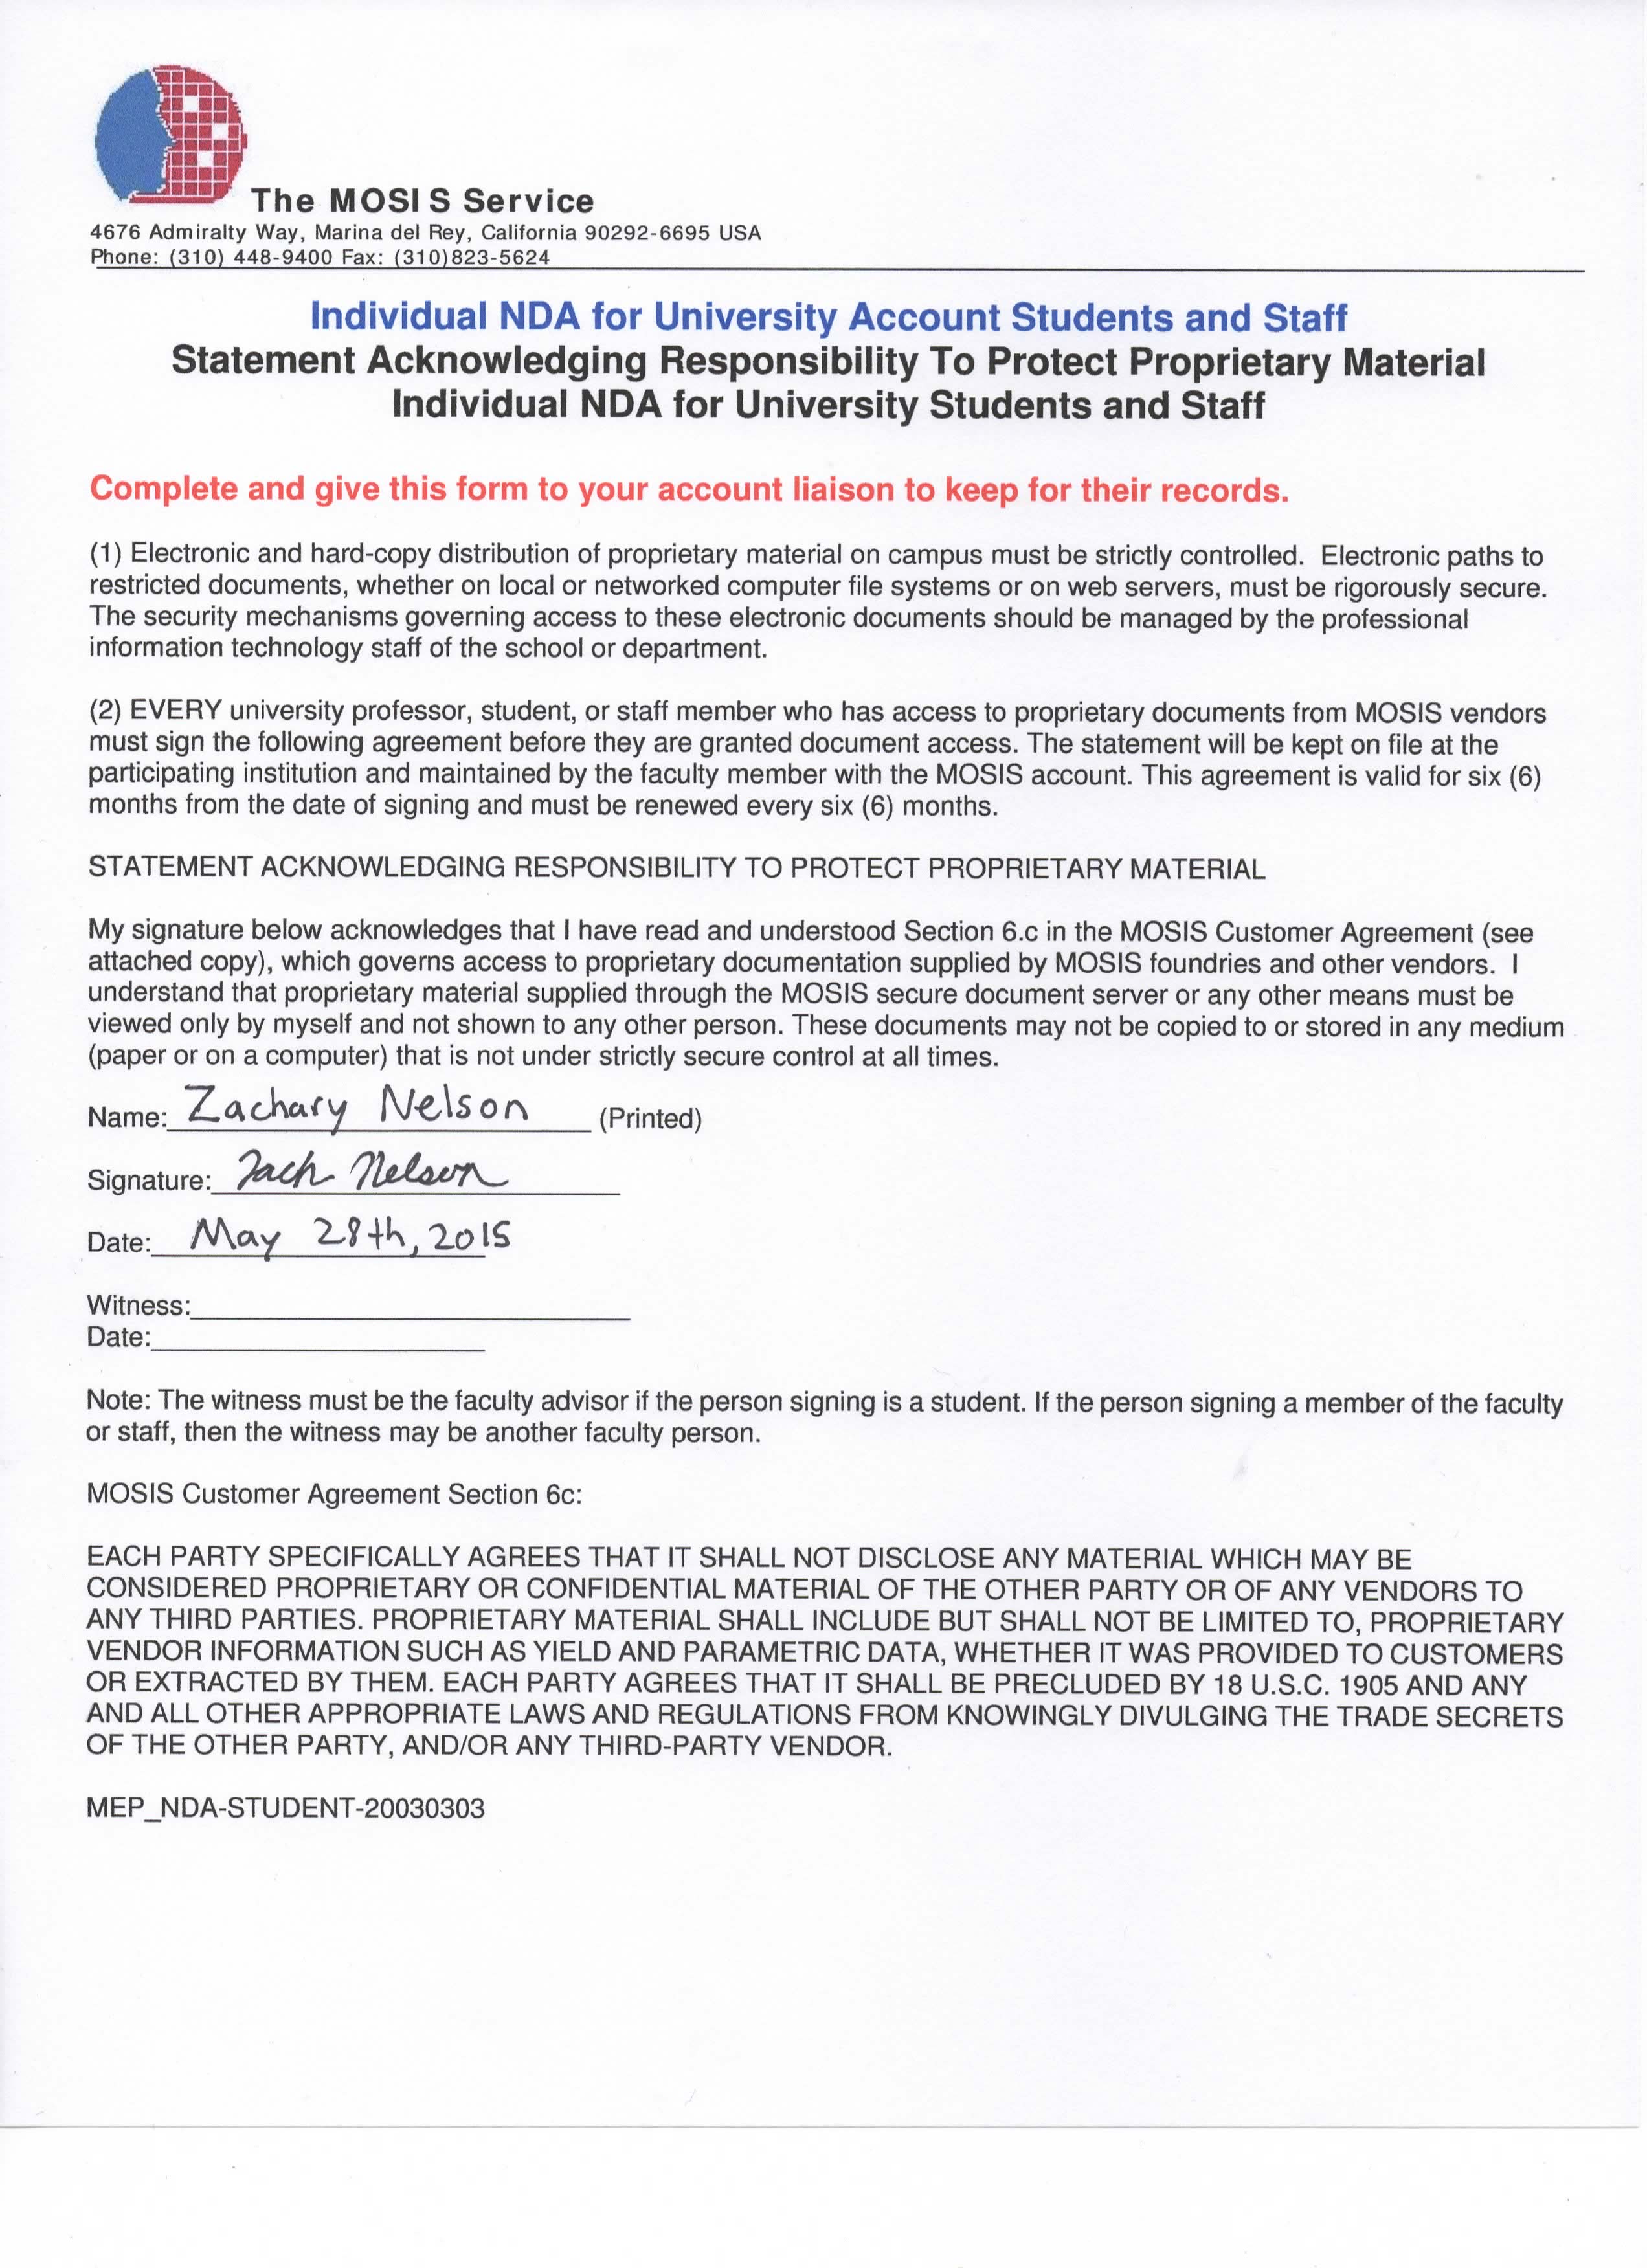 The MOSIS Service
4676 Admiralty Way, Marina del Rey, California 90292-6695 USA
Phone: (310) 448-9400 Fax: (310)823-5624
Individual NDA for University Account Students and Staff
Statement Acknowledging Responsibility To Protect Proprietary Material
Individual NDA for University Students and Staff
Complete and give this form to your account liaison to keep for their records.
(1) Electronic and hard-copy distribution of proprietary material on campus must be strictly controlled.  Electronic paths to
restricted documents, whether on local or networked computer file systems or on web servers, must be rigorously secure.
The security mechanisms governing access to these electronic documents should be managed by the professional
information technology staff of the school or department.
(2) EVERY university professor, student, or staff member who has access to proprietary documents from MOSIS vendors
must sign the following agreement before they are granted document access. The statement will be kept on file at the
participating institution and maintained by the faculty member with the MOSIS account. This agreement is valid for six (6)
months from the date of signing and must be renewed every six (6) months.
STATEMENT ACKNOWLEDGING RESPONSIBILITY TO PROTECT PROPRIETARY MATERIAL
My signature below acknowledges that I have read and understood Section 6.c in the MOSIS Customer Agreement (see
attached copy), which governs access to proprietary documentation supplied by MOSIS foundries and other vendors.  I
understand that proprietary material supplied through the MOSIS secure document server or any other means must be
viewed only by myself and not shown to any other person. These documents may not be copied to or stored in any medium
(paper or on a computer) that is not under strictly secure control at all times.
Name: Zachary Nelson (Printed)
Signature: Zach Nelson
Date: May 28th, 2015
Witness:
Date:
Note: The witness must be the faculty advisor if the person signing is a student. If the person signing a member of the faculty
or staff, then the witness may be another faculty person.
MOSIS Customer Agreement Section 6c:
EACH PARTY SPECIFICALLY AGREES THAT IT SHALL NOT DISCLOSE ANY MATERIAL WHICH MAY BE
CONSIDERED PROPRIETARY OR CONFIDENTIAL MATERIAL OF THE OTHER PARTY OR OF ANY VENDORS TO
ANY THIRD PARTIES. PROPRIETARY MATERIAL SHALL INCLUDE BUT SHALL NOT BE LIMITED TO, PROPRIETARY
VENDOR INFORMATION SUCH AS YIELD AND PARAMETRIC DATA, WHETHER IT WAS PROVIDED TO CUSTOMERS
OR EXTRACTED BY THEM. EACH PARTY AGREES THAT IT SHALL BE PRECLUDED BY 18 U.S.C. 1905 AND ANY
AND ALL OTHER APPROPRIATE LAWS AND REGULATIONS FROM KNOWINGLY DIVULGING THE TRADE SECRETS
OF THE OTHER PARTY, AND/OR ANY THIRD-PARTY VENDOR.
MEP_NDA-STUDENT-20030303